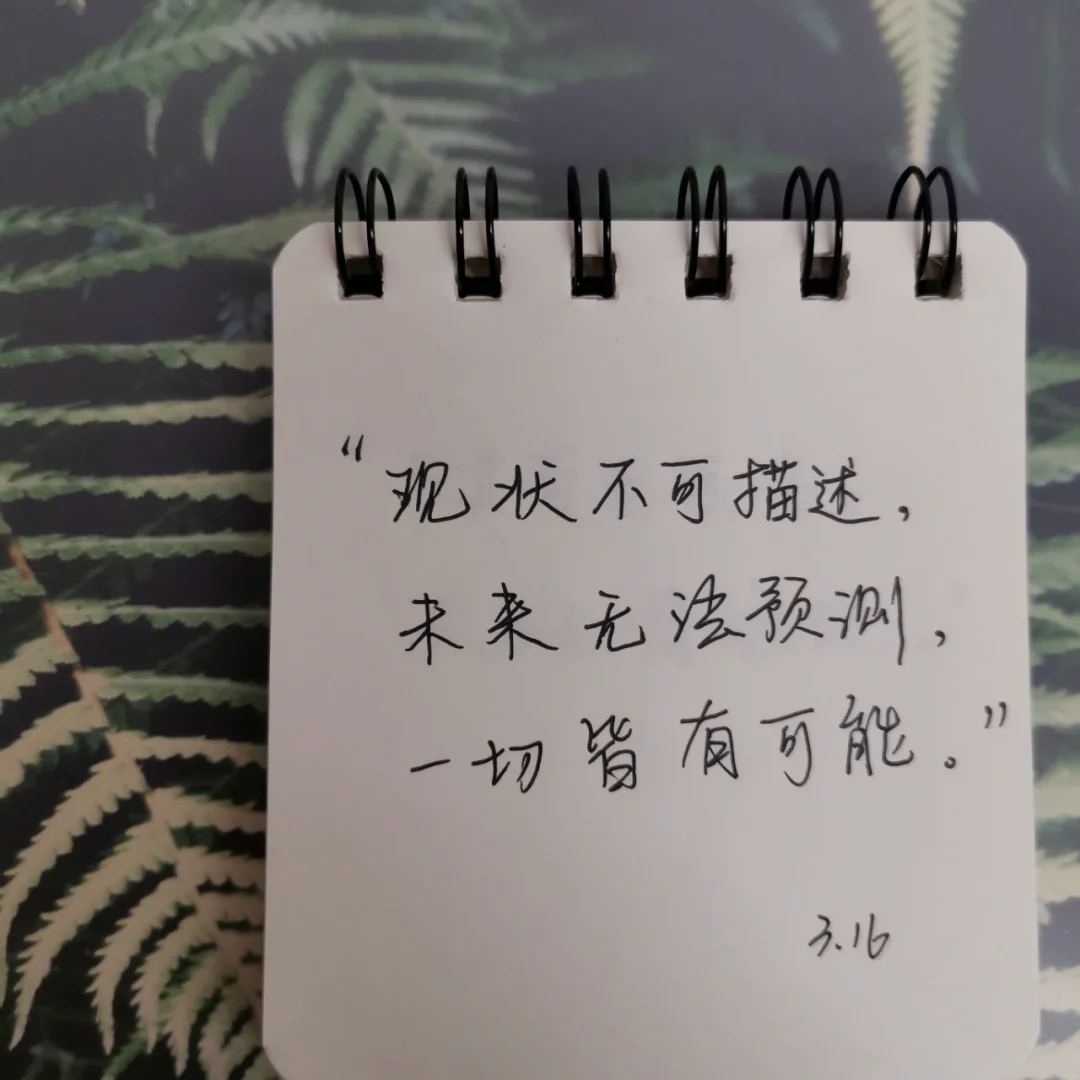 “现状不可描述，
未来无法预测，
一切皆有可能。”
3.16